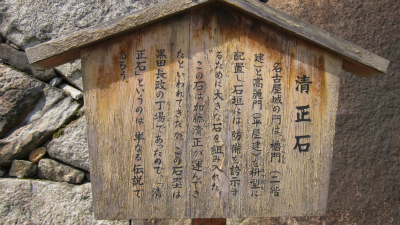 清正石
名古屋城の門は、櫓門(二階
建)と高麗門(平屋建)を枡型に
配置し、石垣には防備を誇示す
るために大きな石を組み入れた。
この石は加藤清正が運んでき
たといわれてきたが、この石塁は
黒田長政の丁場であったので、「清
正石」というのは、単なる伝説で
あろう。